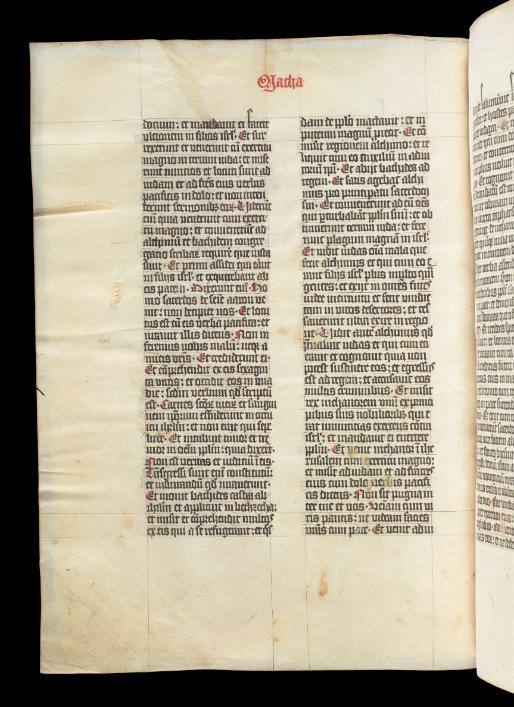 Macha
docium; et mandauit ei facere
ultionem in filios isrl̄. Et sur
rexerunt et uenerunt cū exercitu
magno in terram iuda; et mise
runt nuncios et locuti sunt ad
iudam et ad fr̄es eius uerbis
pacificis in dolo; et non inten
derunt sermonibꝫ eoꝝ. Viderūt
eni͛ quia uenerunt cum exerci
tu magno; et conuenerūt ad
alchimū et bachidem congre
gacio scribaꝝ requirere que iusta
sunt. Et primi assidei qui erāt
in filijs isrl̄; et exquirebant ab
eis pacem. Dixerunt eni͛. Ho
mo sacerdos de seīe aaron ue
nit; non decipiet nos. Et locu
tus est cū eis uerba pacifica; et
iurauit illis dicens. Non in
feremus uobis malū; neqꝫ a
micis ur̄is. Et crediderunt ei.
Et cōprehendit ex eis sexagin
ta uiros; et occidit eos in una
die; scd̄m uerbum qd̄ scriptū
est. Carnes sc̄oꝝ tuoꝝ et sangui
nem ipoꝝ effuderunt in circu
itu ihrlm̄; et non erat qui sepe
liret. Et incubuit timor et tre
mor in om̄em pplm̄; quia dixerūt
Non est ueritas et iudiciū in eis.
Trāsgressi sunt eni͛ constitutū;
et iusiurandū qd̄ iurauerunt.
Et mouit bachides castra ab
ihrlm̄ et applicuit in bethzecha;
et misit et cōprehendit multos
ex eis qui a se refugerant; et qs̄
dam de pplo͛ mactauit; et in
puteum magnū proiecit. Et cō
misit regionem alchimo; et re
liquit cum eo auxiliū in adiu
toriū ipī. Et abijt bachides ad
regem. Et satis agebat alchi
mus pro principatu sacerdocij
sui. Et conuenerunt ad eū oēs
qui perturbabāt pplm̄ suū; et ob
tinuerunt terram iuda; et fece
runt plagam magnā in isrl̄.
Et uidit iudas oīa mala que
fecit alchimus et qui cum eo e
rant filijs isrl̄ plus multo quā
gentes; et exijt in om̄es fines
iudee in circuitu et fecit uindic
tam in uiros desertores; et ces
sauerunt ultra exire in regio
nē. Vidit autē alchimus qd̄
preualuit iudas et qui cum eo
erant et cognouit quia non
potest sustinere eos; et regressꝰ
est ad regem; et accusauit eos
multis criminibus. Et misit
rex nichanorem unū ex princi
pibus suis nobilioribꝫ; qui e
rat inimicicias exercens cont̄
isrl̄; et mandauit ei euertere
pplm̄. Et uenit nichanor ī ihe
rusalem cū exercitu magno;
et misit ad iudam et ad fr̄es
eius cum dolo uerbis pacifi
cis dicens. Non sit pugna in
ter me et uos. Veniam cum ui
ris paucis; ut uideam facies
ur̄as cum pace. Et uenit ad iu